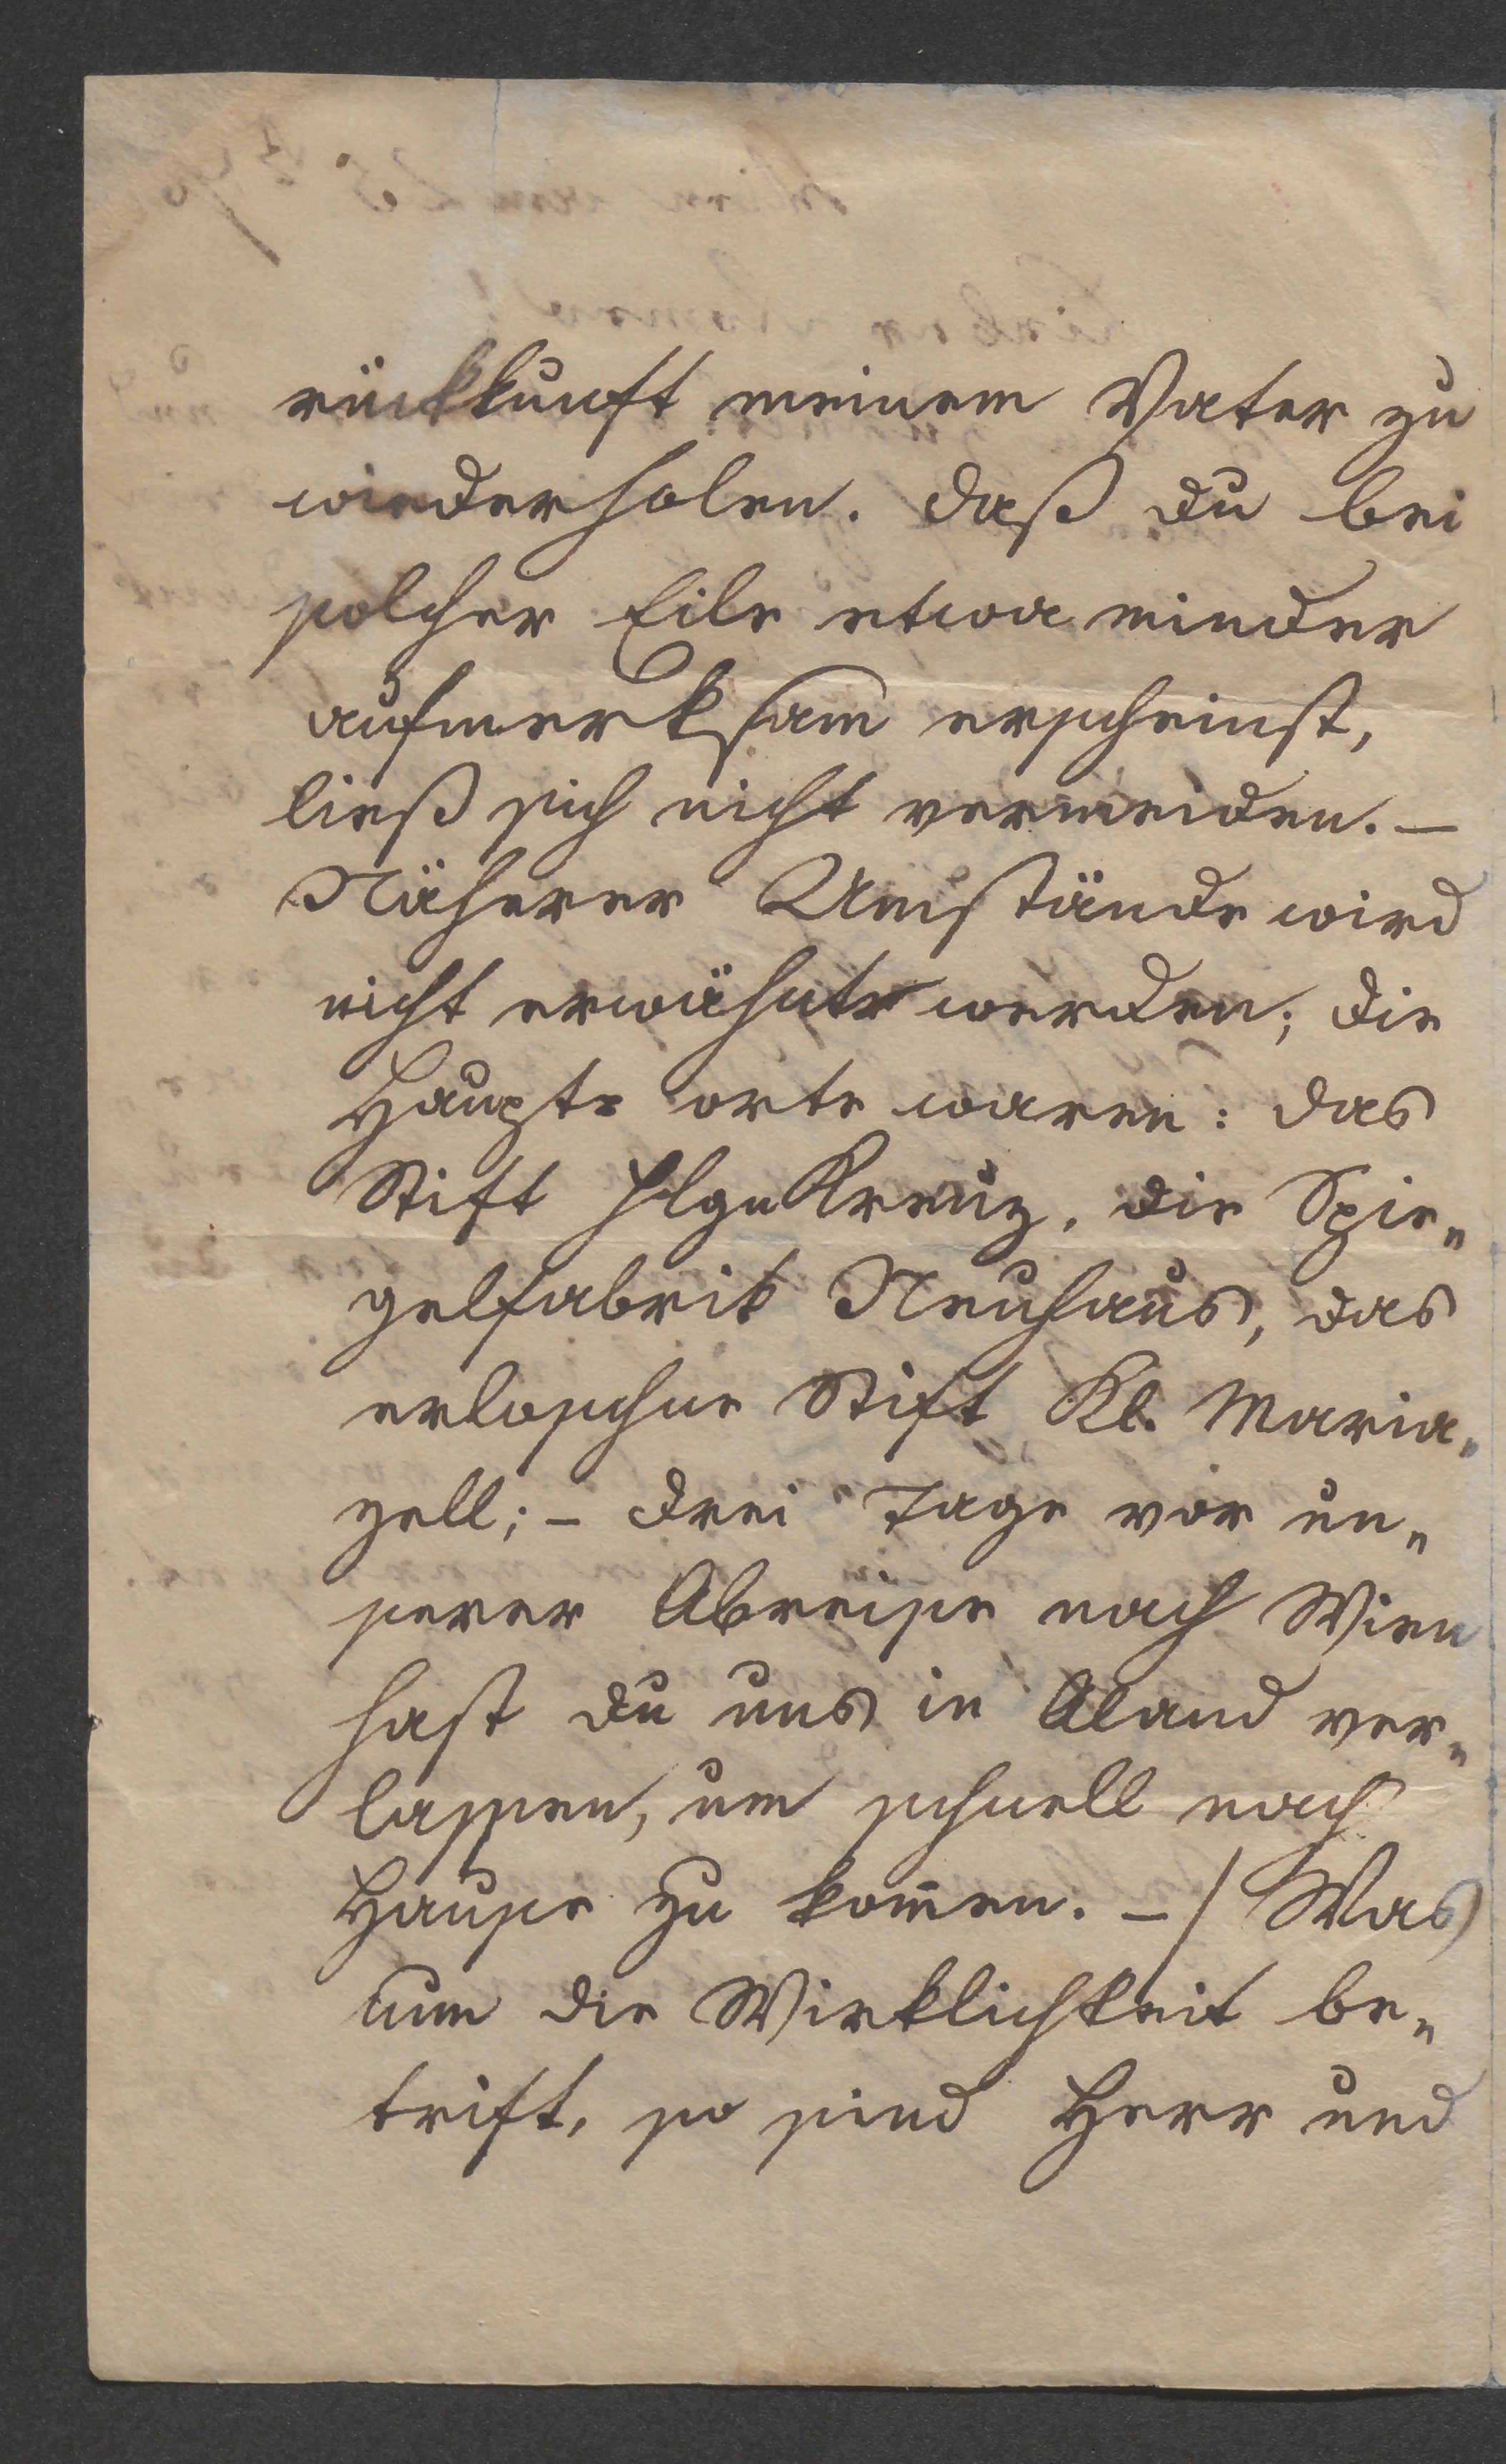 rückkunft meinem Vater zu
wiederholen. daß du bei
solcher Eile etwa minder
aufmerksam erscheinst,
ließ sich nicht vermeiden. –
Näherer Umstände wird
nicht erwähnt werden; die
Haupt orte waren: das
Stift Hlgn Kreuz, die Spie„
gelfabrik Neuhaus, das
erloschne Stift Kl. Maria„
zell; – drei Tage vor un„
serer Abreise nach Wien
hast du uns in Aland ver„
lassen, um schnell nach
Hause zu kom̄en. – / Was
nun die Wirklichkeit be„
trift, so sind Herr und